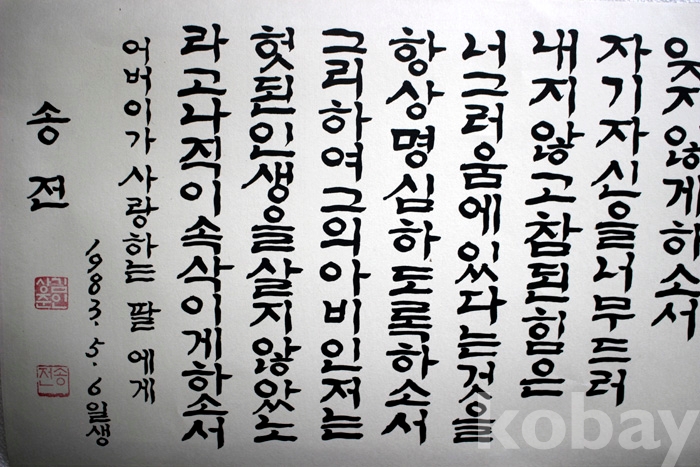 잊지않게하소서
자기자신을너무드러
내지않고참된힘은
너그러움에있다는것을
항상명심하도록하소서
그리하여그의아비인저는
헛된인생을살지않았노
라고나직이속삭이게하소서
어버이가 사랑하는 딸 에게
1983. 5. 6일생
송 전
kobay